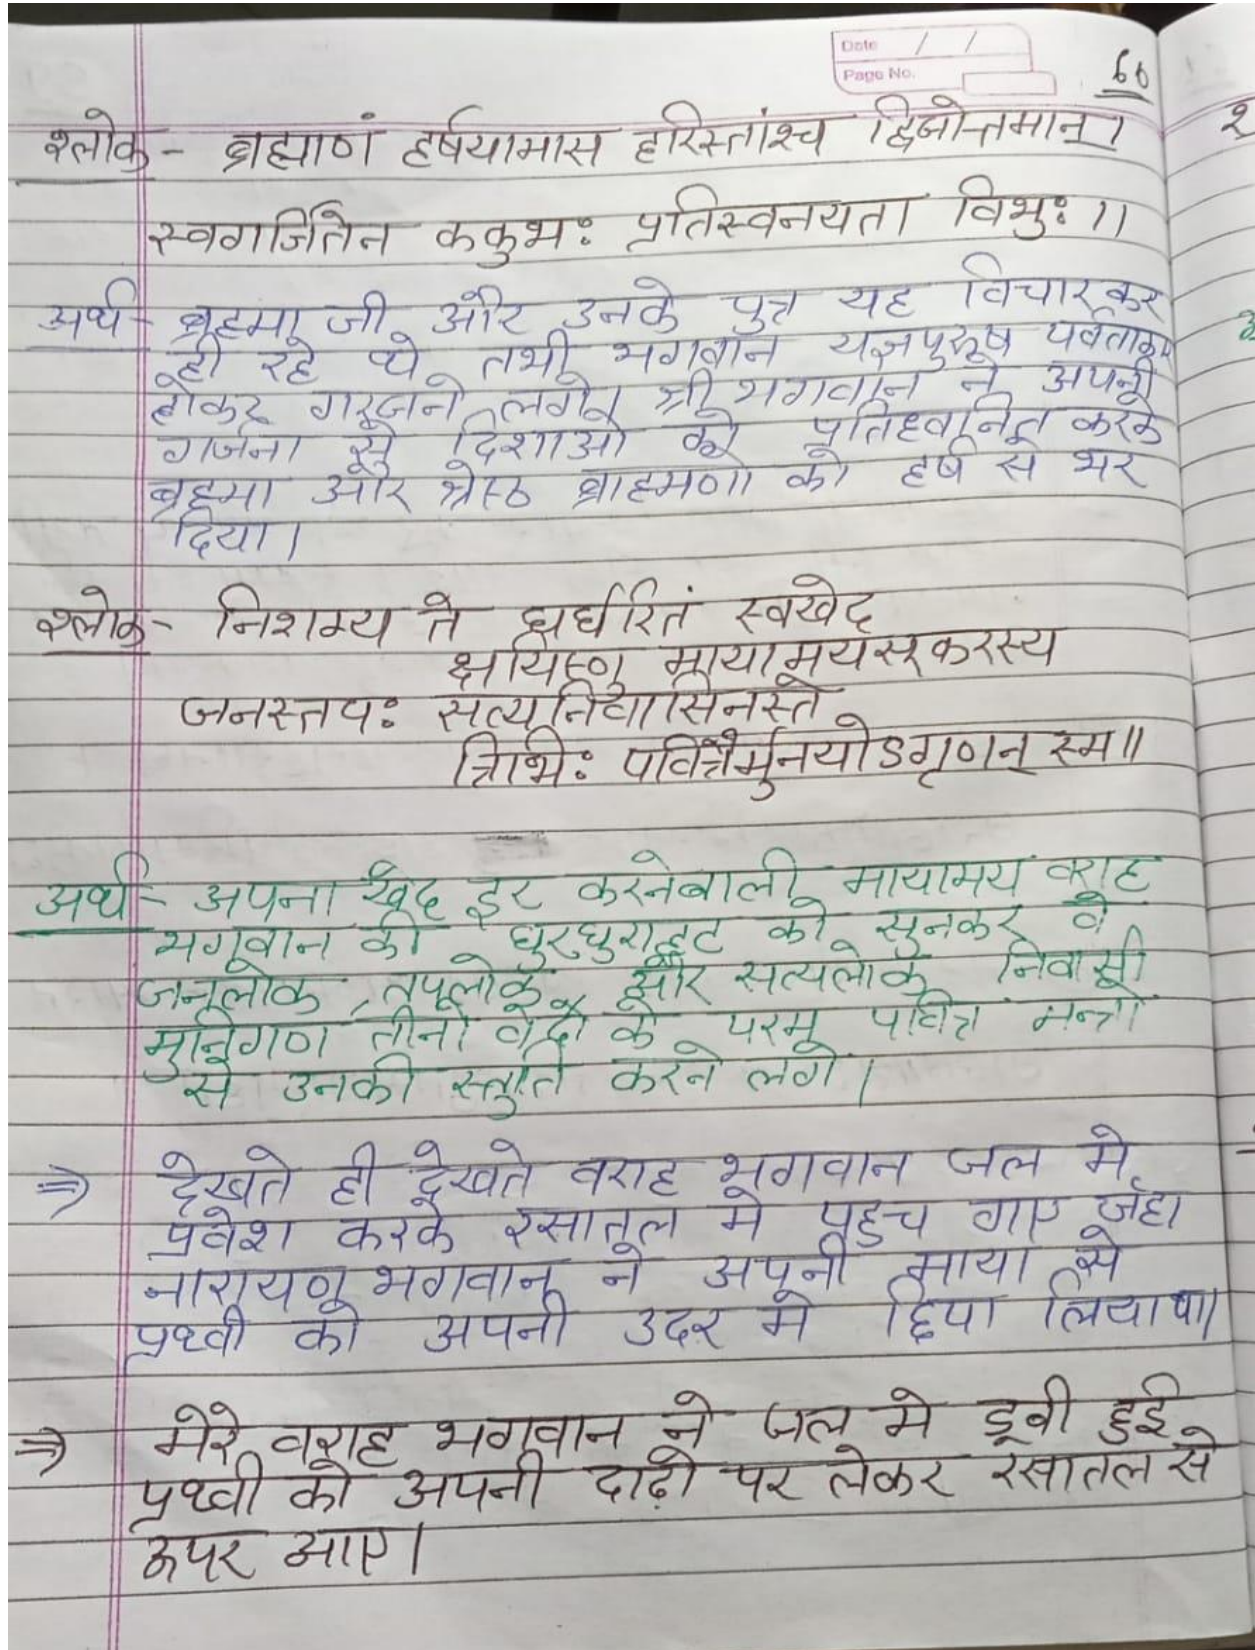 Date / /
Page No.
60
श्लोक - ब्रह्माणं हर्षयामास हरिस्तांश्च द्विजोत्तमान्।
स्वगर्जितेन ककुभः प्रतिस्वनयता विभुः।।
अर्थ - ब्रहमा जी और उनके पुत्र यह विचार कर
ही रहे थे तभी भगवान यज्ञपुरूष पर्वताकार
होकर गरजने लगे। श्री भगवान ने अपनी
गर्जना से दिशाओ को प्रतिध्वनित करके
ब्रहमा और श्रेस्ठ ब्राहमणो को हर्ष से भर
दिया।
श्लोक - निशम्य ते घर्घरितं स्वखेद
क्षयिष्णु मायामयसूकरस्य
जनस्तपः सत्यनिवासिनस्ते
त्रिभिः पवित्रैर्मुनयोऽगृणन् स्म॥
अर्थ - अपना खेद दूर करनेबाली मायामय वराह
भगवान की घुरघुराहट को सुनकर वे
जनलोक, तपलोक और सत्यलोक निवासी
मुनिगण तीनो वेदो के परम पवित्र मन्त्रो
से उनकी स्तुति करने लगे।
⇒ देखते ही देखते वराह भगवान जल मे
प्रवेश करके रसातल मे पहुच गाए जहा
नारायण भगवान ने अपनी माया से
प्रथ्वी को अपनी उदर मे छिपा लिया था।
⇒ मेरे वराह भगवान ने जल मे डूवी हुई
प्रथ्वी को अपनी दाढ़ो पर लेकर रसातल से
ऊपर आए।